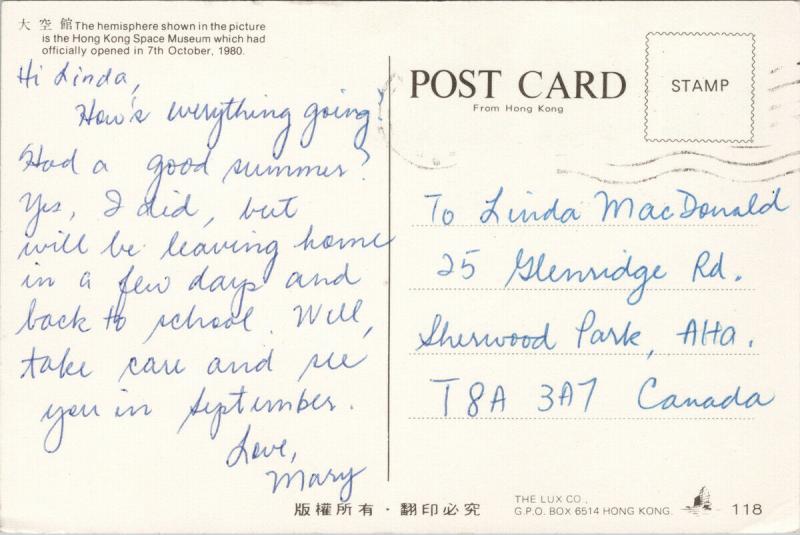 太空館 The hemisphere shown in the picture
is the Hong Kong Space Museum which had
officially opened in 7th October, 1980.
Hi Linda,
How's everything going?
Had a good summer?
Yes, I did, but
will be leaving home
in a few days and
back to school. Well,
take care and see
you in September.
Love,
Mary
POST CARD
From Hong Kong
STAMP
To Linda MacDonald
25 Glenridge Rd.
Sherwood Park, Alta.
T8A 3A7 Canada
版權所有·翻印必究
THE LUX CO.,
G.P.O. BOX 6514 HONG KONG.
118